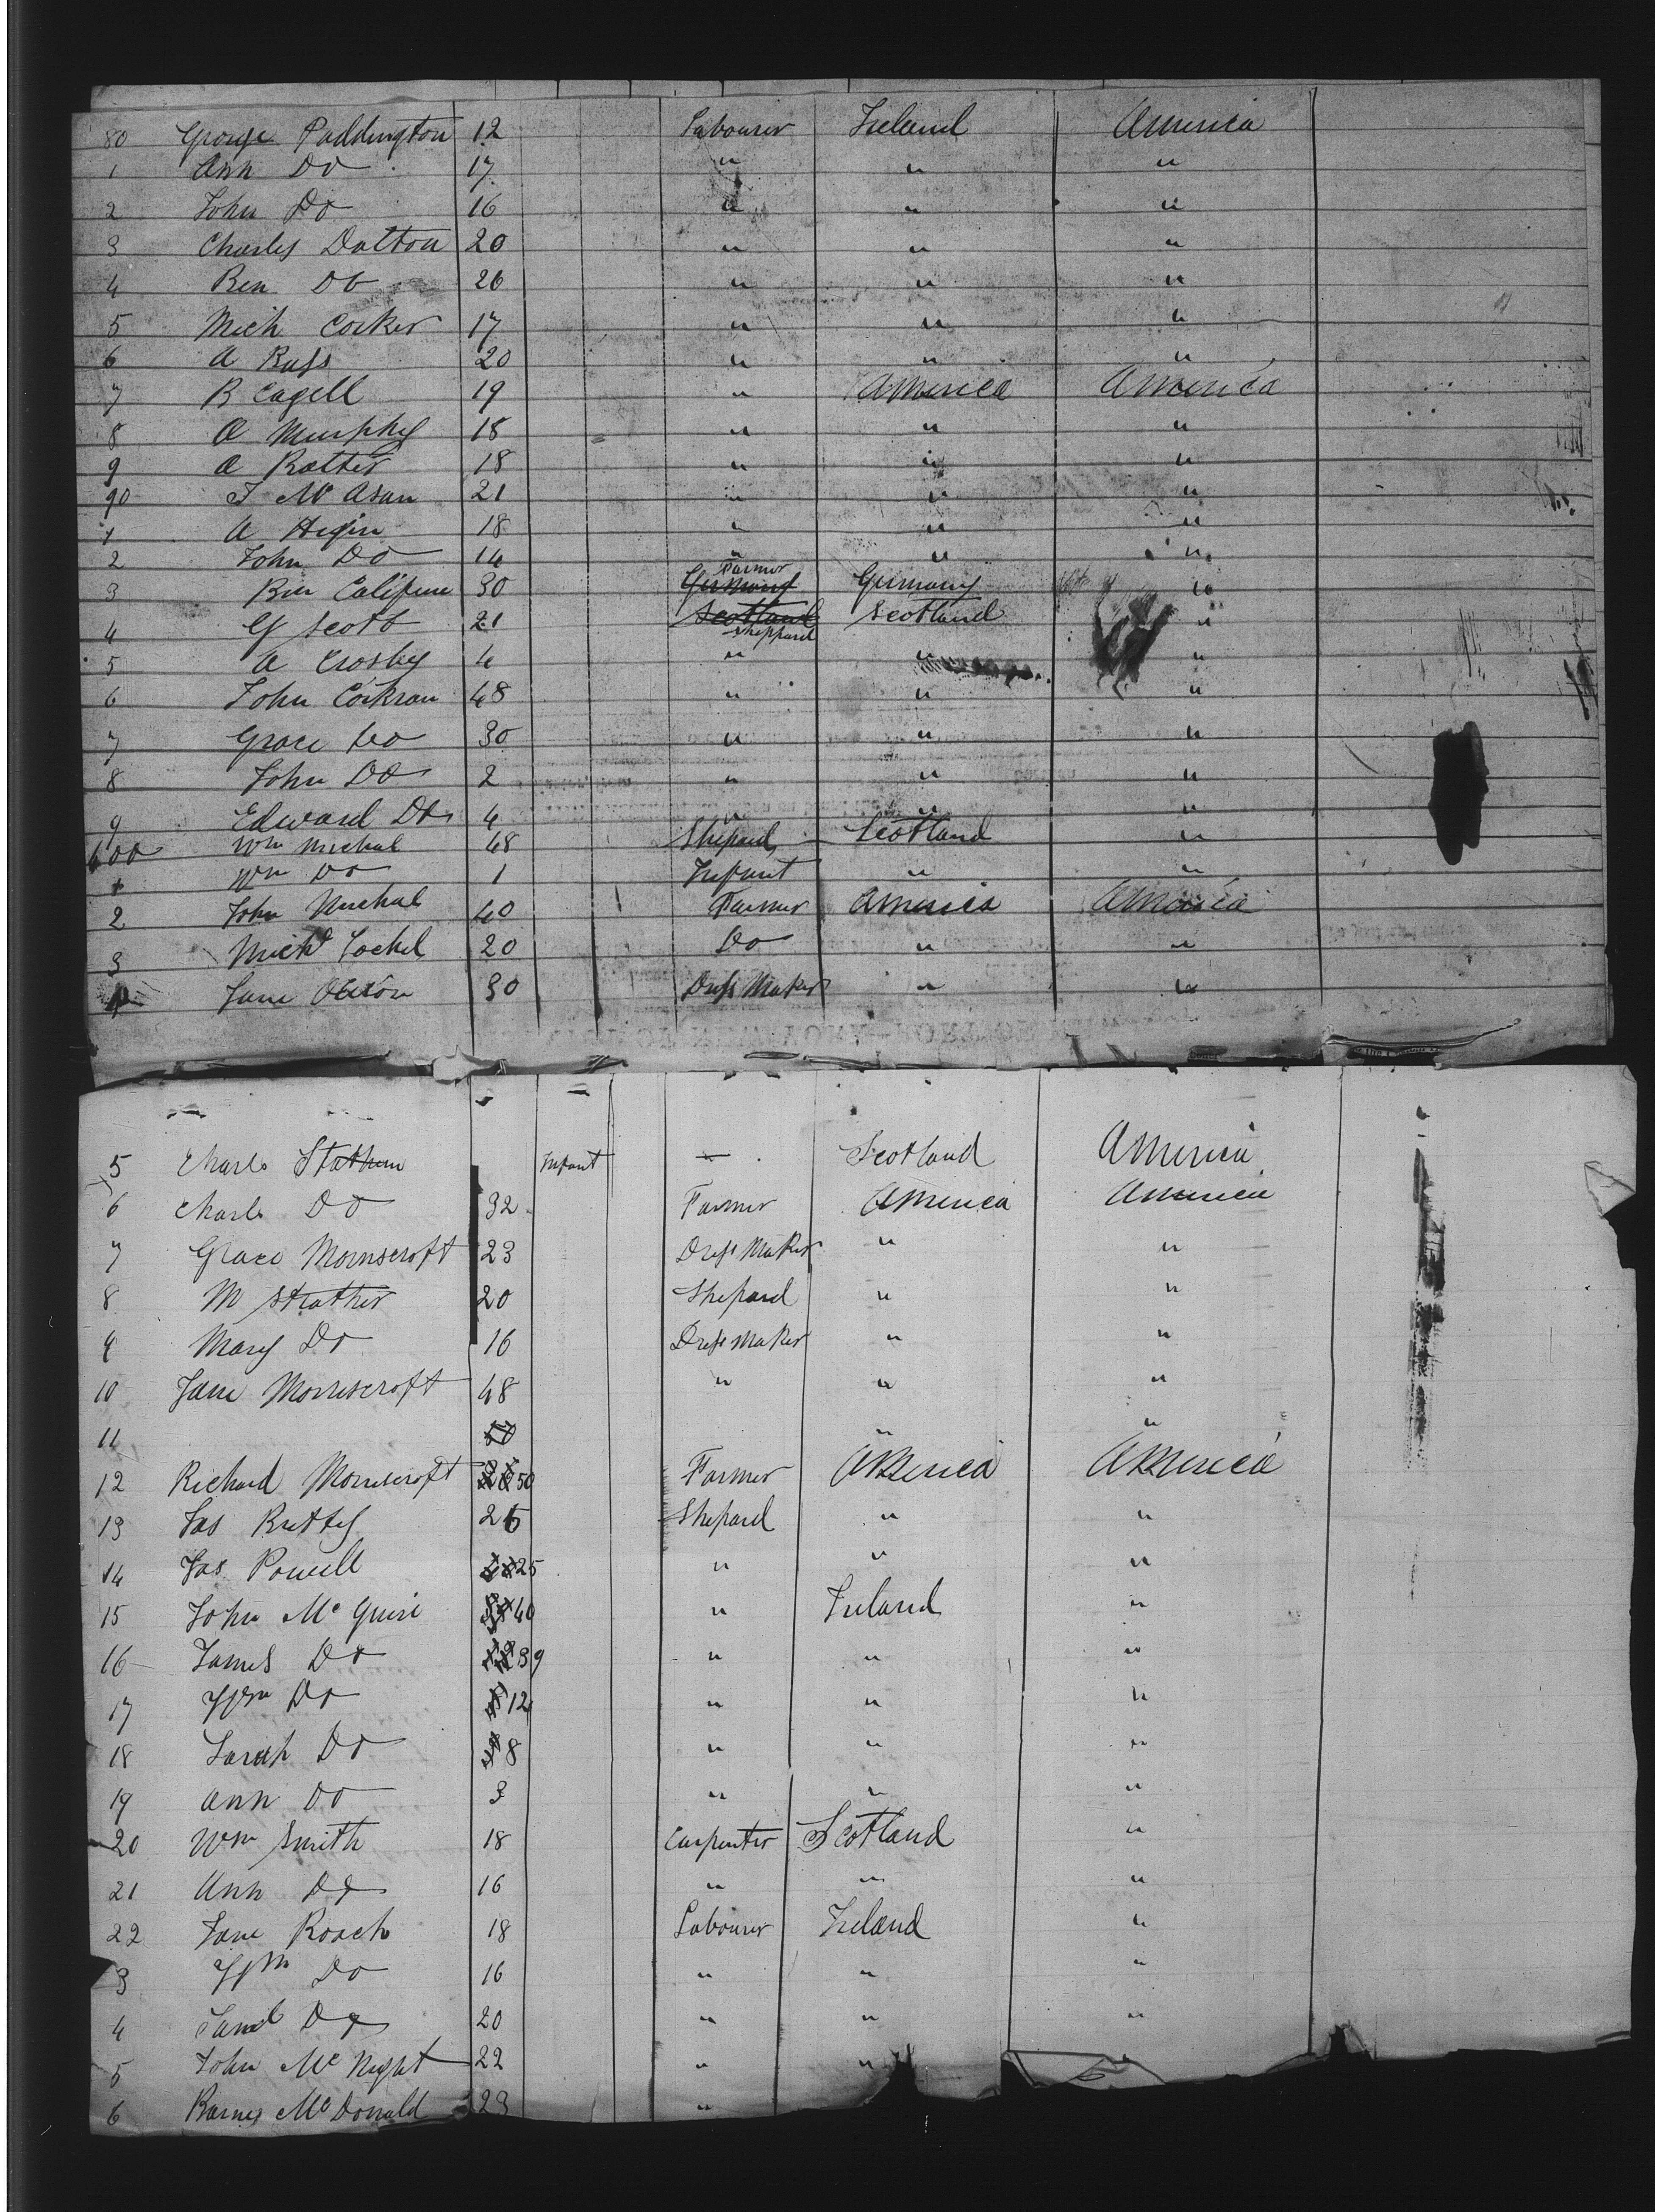 80 George Paddington 12 Labourer Ireland America
1 Ann Do 17 " " "
2 John Do 16 " " "
3 Charles Dalton 20 " " "
4 Ben Do 26 " " "
5 Mich Corker 17 " " "
6 A Russ 20 " " "
7 R Cagell 19 " America America
8 A Murphy 18 " " "
9 A Rotter 18 " " "
90 J Mc Asan 21 " " "
1 A Higin 18 " " "
2 John Do 14 " " "
Farmer
3 Ben 30 Germany Germany "
4 G Scott 21 Scotland Scotland "
Sheppard
5 A Crosby 4 " " "
6 John Corkran 48 " " "
7 Grace Do 30 " " "
8 John Do 2 " " "
9 Edward Do 4 " " "
600 Wm Michal 48 Shepard Scotland "
1 Wm Do 1 Infant " "
2 John Michal 40 Farmer America America
3 Mich Lockel 20 Do " "
4 Jane 30 Dress Maker " "
5 Charls Stathern Infant Scotland America
6 Charls Do 32 Farmer America America
7 Grace Morniscroft 23 Dress Maker " "
8 M Strather 20 Shepard " "
9 Mary Do 16 Dress Maker " "
10 Jane Morniscroft 48 " " "
11 " "
12 Richard Morniscroft 50 Farmer America America
13 Jas 26 Shepard " "
14 Jas Powell 25 " " "
15 John Mc Guire 40 " Ireland "
16 James Do 39 " " "
17 Wm Do 12 " " "
18 Sarah Do 8 " " "
19 Ann Do 3 " " "
20 Wm Smith 18 Carpenter Scotland "
21 Ann Do 16 " " "
22 Jane Roach 18 Labourer Ireland "
3 Wm Do 16 " " "
4 Saml Do 20 " " "
5 John Mc Night 22 " " "
6 Barney Mc Donald 23 "